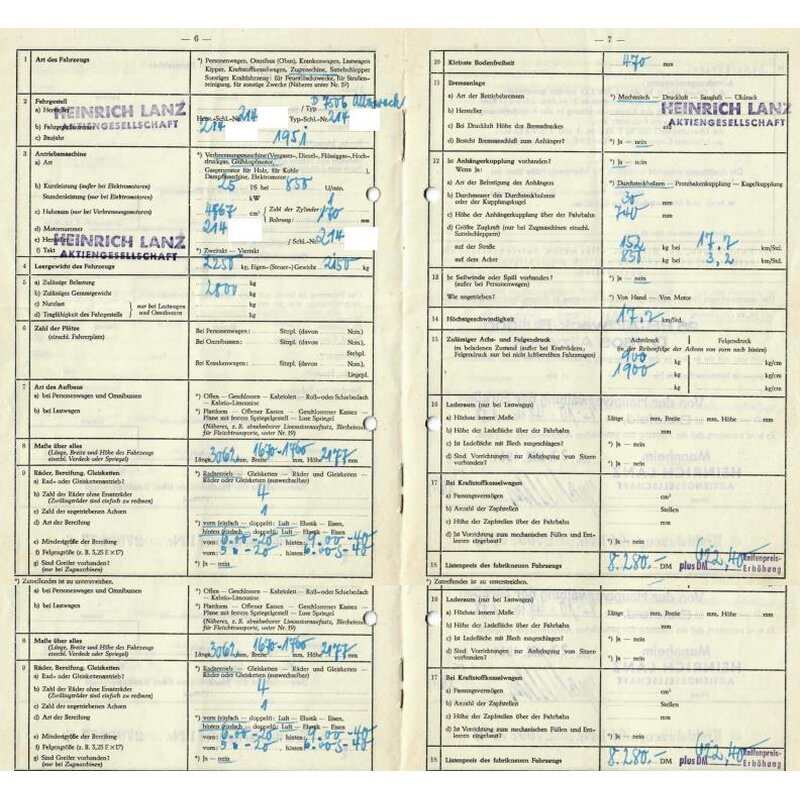 — 6 —
1 Art des Fahrzeugs
*) Personenwagen, Omnibus (Obus), Krankenwagen, Lastwagen
Kipper, Kraftstoffkesselwagen, Zugmaschine, Sattelschlepper
Sonstiges Kraftfahrzeug: für Feuerlöschzwecke, für Straßen-
reinigung, für sonstige Zwecke (Näheres unter Nr. 19)
2 Fahrgestell
D 7506
a) Hersteller
HEINRICH LANZ
AKTIENGESELLSCHAFT
/ Typ
214
Typ-Schl.-Nr. 214
b)
214
c) Baujahr
195
3 Antriebsmaschine
a) Art
*) Verbrennungsmaschine (Vergaser-, Diesel-, Flüssiggas-, Hoch-
druckgas, Glühkopfmotor,
Gasgenerator für Holz, für Kohle ),
Dampfmaschine, Elektromotor
b) Kurzleistung (außer bei Elektromotoren)
25 PS bei 850 U/min.
Stundenleistung (nur bei Elektromotoren)
kW
c) Hubraum (nur bei Verbrennungsmotoren)
4767 cm³ Zahl der Zylinder: 1
Bohrung: 170 mm
d) Motornummer
214
e) Hersteller
HEINRICH LANZ
AKTIENGESELLSCHAFT
/ Schl.-Nr. 214
f) Takt
*) Zweitakt – Viertakt
4 Leergewicht des Fahrzeugs
2250 kg, Eigen- (Steuer-) Gewicht 2150 kg
5 a) Zulässige Belastung
kg
b) Zulässiges Gesamtgewicht
2800 kg
c) Nutzlast
d) Tragfähigkeit des Fahrgestells
nur bei Lastwagen
und Omnibussen
kg
kg
6 Zahl der Plätze
(einschl. Fahrerplatz)
Bei Personenwagen: Sitzpl. (davon Notn.)
Bei Omnibussen: Sitzpl. (davon Notn.)
Stehpl.
Bei Krankenwagen: Sitzpl. (davon Notn.)
Liegepl.
7 Art des Aufbaus
a) bei Personenwagen und Omnibussen
*) Offen — Geschlossen — Kabriolett — Roll- oder Schiebedach
— Kabrio-Limousine
b) bei Lastwagen
*) Plattform — Offener Kasten — Geschlossener Kasten —
Plane mit festem Spriegelgestell — Lose Spriegel
(Näheres, z. B. abnehmbarer Limousinen-Aufsatz,
für Fleischtransporte, unter Nr. 19)
8 Maße über alles
(Länge, Breite und Höhe des Fahrzeugs
einschl. Verdeck oder Spriegel)
Länge 3062 mm, Breite 1670-1760 mm, Höhe 2177 mm
9 Räder, Bereifung, Gleisketten
a) Rad- oder Gleiskettenantrieb?
*) Radantrieb — Gleisketten — Räder und Gleisketten —
Räder oder Gleisketten (auswechselbar)
b) Zahl der Räder ohne Ersatzräder
(Zwillingsräder sind einfach zu rechnen)
4
c) Zahl der angetriebenen Achsen
1
d) Art der Bereifung
*) vorn (einfach — doppelt): Luft — Elastik — Eisen
hinten (einfach — doppelt): Luft — Elastik — Eisen
e) Mindestgröße der Bereifung
vorn: 6.00-20 hinten: 9.00-40
f) Felgengröße (z. B. 3,25 E×17)
vorn: 5 -20 hinten: 6.00S-40
g) Sind Greifer vorhanden?
(nur bei Zugmaschinen)
*) Ja — nein
*) Zutreffendes ist zu unterstreichen.
a) bei Personenwagen und Omnibussen
— Kabrio-Limousine
b) bei Lastwagen
*) Plattform — Offener Kasten — Geschlossener Kasten —
Plane mit festem Spriegelgestell — Lose Spriegel
(Näheres, z. B. abnehmbarer Limousinen-Aufsatz,
für Fleischtransporte, unter Nr. 19)
8 Maße über alles
(Länge, Breite und Höhe des Fahrzeugs
einschl. Verdeck oder Spriegel)
Länge 3062 mm, Breite 1670-1760 mm, Höhe 2177 mm
9 Räder, Bereifung, Gleisketten
a) Rad- oder Gleiskettenantrieb?
*) Radantrieb — Gleisketten — Räder und Gleisketten —
Räder oder Gleisketten (auswechselbar)
b) Zahl der Räder ohne Ersatzräder
(Zwillingsräder sind einfach zu rechnen)
4
c) Zahl der angetriebenen Achsen
1
d) Art der Bereifung
*) vorn (einfach — doppelt): Luft — Elastik — Eisen
hinten (einfach — doppelt): Luft — Elastik — Eisen
e) Mindestgröße der Bereifung
vorn: 6.00-20 hinten: 9.00-40
f) Felgengröße (z. B. 3,25 E×17)
vorn: 5 -20 hinten: 6.00S-40
g) Sind Greifer vorhanden?
(nur bei Zugmaschinen)
*) Ja — nein
— 7 —
10 Kleinste Bodenfreiheit
470 mm
11 Bremsanlage
a) Art der Betriebsbremsen
*) Mechanisch — Druckluft — Saugluft — Öldruck
b) Hersteller
HEINRICH LANZ
AKTIENGESELLSCHAFT
c) Bei Druckluft Höhe des Bremsdruckes
d) Besteht Bremsanschluß zum Anhänger?
*) Ja — nein
12 Ist Anhängerkupplung vorhanden?
Wenn Ja:
*) Ja — nein
a) Art der Befestigung des Anhängers
*) Durchsteckbolzen — Protzhakenkupplung — Kugelkupplung
b) Durchmesser des Durchsteckbolzens
oder der Kupplungskugel
30 mm
c) Höhe der Anhängerkupplung über der Fahrbahn
740 mm
d) Größte Zugkraft (nur bei Zugmaschinen einschl.
Sattelschleppern)
auf der Straße
152 kg bei 17,2 km/Std.
auf dem Acker
850 kg bei 3,2 km/Std.
13 Ist Seilwinde oder Spill vorhanden?
(außer bei Personenwagen)
*) Ja — nein
Wie angetrieben?
*) Von Hand — Von Motor
14 Höchstgeschwindigkeit
17,2 km/Std.
15 Zulässiger Achs- und Felgendruck
im beladenen Zustand (außer bei Krafträdern,
Felgendruck nur bei nicht luftbereiften Fahrzeugen)
Achsdruck Felgendruck
(in der Reihenfolge der Achsen von vorn nach hinten)
900 kg kg/cm
1900 kg kg/cm
kg kg/cm
16 Laderaum (nur bei Lastwagen)
a) Höchste innere Maße
Länge mm, Breite mm, Höhe mm
b) Höhe der Ladefläche über der Fahrbahn
mm
c) Ist Ladefläche mit Blech ausgeschlagen?
*) Ja — nein
d) Sind Vorrichtungen zur Anbringung von Sitzen
vorhanden?
*) Ja — nein
17 Bei Kraftstoffkesselwagen
a) Fassungsvermögen
cm³
b) Anzahl der Zapfstellen
Stellen
c) Höhe der Zapfstellen über der Fahrbahn
mm
d) Ist Vorrichtung zum mechanischen Füllen und Ent-
leeren eingebaut?
*) Ja — nein
18 Listenpreis des fabrikneuen Fahrzeugs
8.280.— DM plus DM 692,40 Reifenpreis-
Erhöhung
*) Zutreffendes ist zu unterstreichen.
Laderaum (nur bei Lastwagen)
a) Höchste innere Maße
Länge mm, Breite mm, Höhe mm
b) Höhe der Ladefläche über der Fahrbahn
mm
c) Ist Ladefläche mit Blech ausgeschlagen?
*) Ja — nein
d) Sind Vorrichtungen zur Anbringung von Sitzen
vorhanden?
*) Ja — nein
17 Bei Kraftstoffkesselwagen
a) Fassungsvermögen
cm³
b) Anzahl der Zapfstellen
Stellen
c) Höhe der Zapfstellen über der Fahrbahn
mm
d) Ist Vorrichtung zum mechanischen Füllen und Ent-
leeren eingebaut?
*) Ja — nein
18 Listenpreis des fabrikneuen Fahrzeugs
8.280.— DM plus DM 692,40 Reifenpreis-
Erhöhung